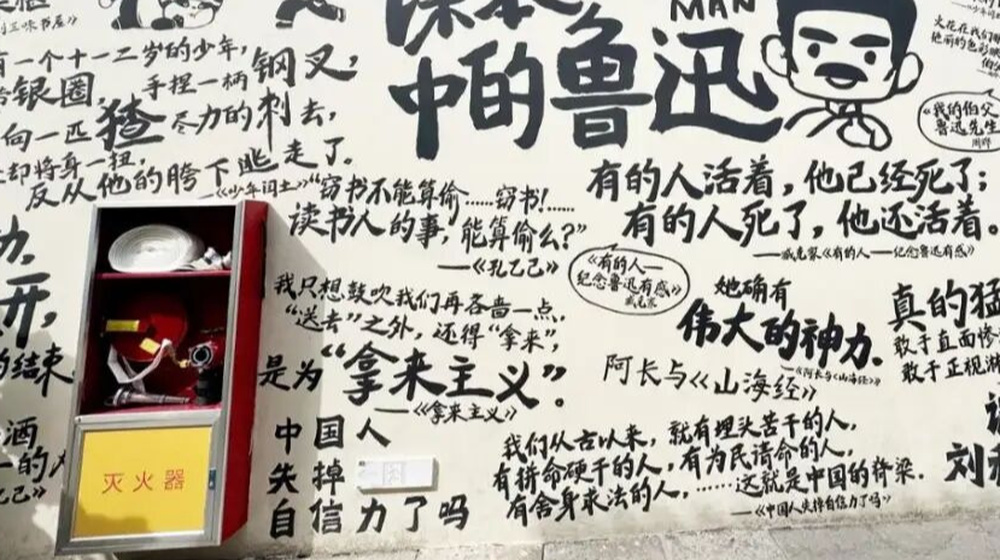 《三味书屋》
课本
MAN
中的鲁迅
有一个十一二岁的少年,
银圈, 手捏一柄钢叉,
向一匹猹尽力的刺去,
却将身一扭,
反从他的胯下逃走了.
——《少年闰土》
“窃书不能算偷……窃书!……
读书人的事, 能算偷么?”
——《孔乙己》
有的人活着, 他已经死了;
有的人死了, 他还活着。
——臧克家《有的人——纪念鲁迅有感》
《有的人—
纪念鲁迅有感》
臧克家
《我的伯父
鲁迅先生》
周晔
我只想鼓吹我们再吝啬一点,
“送去”之外, 还得“拿来”,
是为“拿来主义”。
——《拿来主义》
她确有
伟大的神力.
——《阿长与《山海经》》
阿长与《山海经》
真的猛
敢于直面惨
敢于正视淋
刘和
中国人
失掉
自信力了吗
我们从古以来, 就有埋头苦干的人,
有拼命硬干的人, 有为民请命的人,
有舍身求法的人, ……这就是中国的脊梁.
——《中国人失掉自信力了吗》
力,
开,
的结束.
酒
一的
乙己》
灭火器